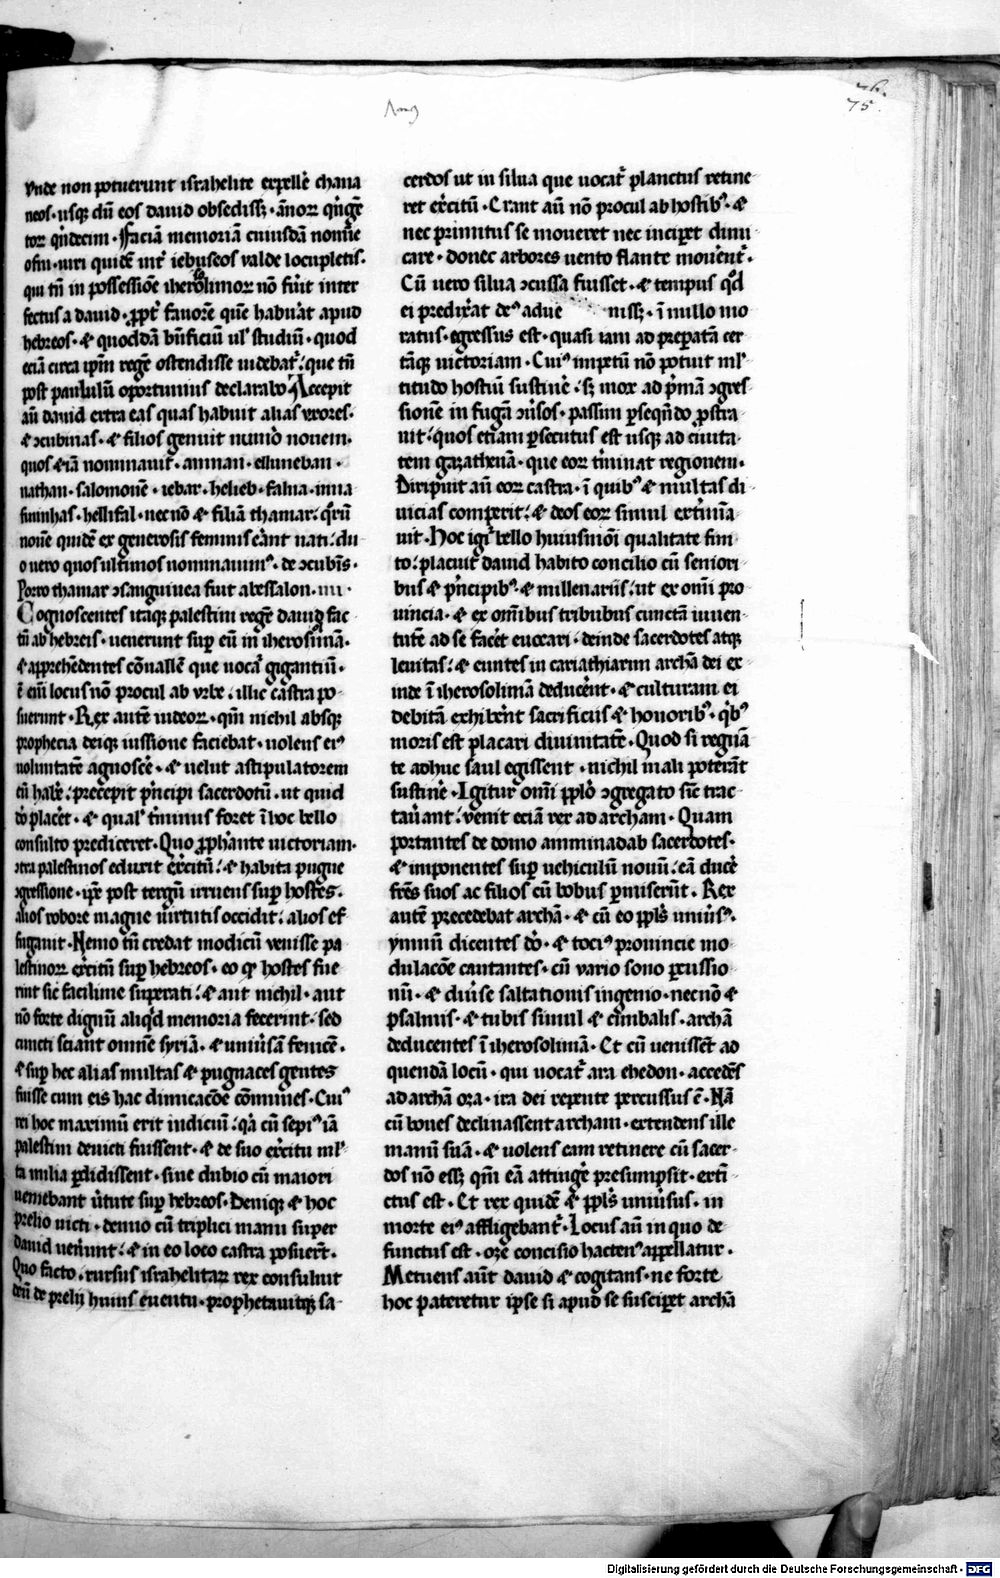 76.
75.
vnde non potuerunt israhelite expellē chana
neos · usq; dū eos dauid obsediss; · ānoꝝ q̇ngē
toꝝ q̇ndecim · Faciā memoriā cuiusdā nomīe
ofni · uiri quidē int̄ iebuseos valde locupletis ·
qui tn̄ in possessiōe iherosolimoꝝ nō fuit inter
fectus a dauid · ꝓpt̄ fauorē quē habuāt apud
hebreos · ⁊ quoddā bn̄ficiū ul' studiū · quod
eciā circa ip̄m regē ostendisse uidebat̄ · que tn̄
post paululū oportunius declarabo Accepit
aū dauid extra eas quas habuit alias vxores ·
⁊ ɔcubinas · ⁊ filios genuit numō nouem ·
quos ⁊iā nominauit · amnan · ellimeban ·
nathan · salomonē · iebar · helieb · falna · inna
finnhas · hellifal · necnō ⁊ filiā thamar · q̇rū
nouē quidē ex generosis feminis erant nati · du
o uero quos ultimos nominauim⁹ · de ɔcubīs ·
Porro thamar ɔsanguinea fuit abessalon · iiii ·
Cognoscentes itaq; palestini regē dauid fac
tū ab hebreis · uenerunt suꝑ eū in iherosolimā ·
⁊ apprehēdentes cōuallē que uocat̄ gigantiū ·
ē eni locus nō procul ab vrbe · illic castra po
suerunt · Rex autē iudeoꝝ · qm̄ nichil absq;
prophecia deiq; iussione faciebat · uolens ei⁹
uoluntatē agnoscē · ⁊ velut astipulatorem
eū habē · precepit p̄ncipi sacerdotū · ut quid
dō placēt · ⁊ qual' t̄minus foret ī hoc bello
consulto prediceret · Quo ꝓphante uictoriam ·
ɔtra palestinos eduxit exc̄itū · ⁊ habita pugne
ɔgressione · ip̄e post tergū irruens suꝑ hostes ·
alios robore magne uirtutis occidit · alios ef
fugauit · Nemo tn̄ credat modicū venisse pa
lestinoꝝ exc̄itū suꝑ hebreos · eo q hostes fue
rint sic facilime superati · ⁊ aut nichil · aut
nō forte dignū aliq̇d memoria fecerint · sed
cuncti sciant omnē syriā · ⁊ uniūsā fenicē ·
⁊ suꝑ hec alias multas ⁊ pugnaces gentes
fuisse cum eis hac dimicacōe cōmunes · Cui⁹
rei hoc maximū erit indiciū · q̇a cū sepi⁹ iā
palestini deuicti fuissent · ⁊ de suo exc̄itu ml'
ta milia ꝑdidissent · sine dubio cū maiori
ueniebant ūtute suꝑ hebreos · Deniq; ⁊ hoc
prelio uicti · denuo cū triplici manu super
dauid uenūnt · ⁊ in eo loco castra posuert̄ ·
Quo facto · rursus israhelitaꝝ rex consuluit
deū de prelij huius euentu · prophetauitq; sa
cerdos ut in silua que uocat̄ planctus retine
ret exc̄itū · Erant aū nō procul ab hostib⁹ · ⁊
nec primitus se moueret nec inciꝑet dimi
care · donec arbores uento flante mouent̄ ·
Cū uero silua ɔcussa fuisset · ⁊ tempus q̇d
ei predixāt de⁹ adue niss; · ī nullo mo
ratus · egressus est · quasi iam ad preparatā cer
tāq; uictoriam · Cui⁹ impetū nō potuit ml'
titudo hostiū sustinē · s; mox ad p̄mā ɔgres
sionē in fugā ɔūsos · passim ꝑseqn̄do ꝓstra
uit · quos etiam ꝑsecutus est usq; ad ciuita
tem gazathenā · que eoꝝ t̄minat regionem ·
Diripuit aū eoꝝ castra · ī quib⁹ ⁊ multas di
uicias comperit · ⁊ deos eoꝝ simul ext̄mīa
uit · Hoc igi' bello huiusmōi qualitate fini
to · placuit dauid habito concilio cū seniori
bus ⁊ p̄ncipib⁹ · ⁊ millenariis · ut ex om̄i pro
uincia · ⁊ ex om̄ibus tribubus cunctā iuuen
tutē ad se facēt euocari · deinde sacerdotes atq;
leuitas · ⁊ euntes in cariathiarim archā dei ex
inde ī iherosolimā deducēnt · ⁊ culturam ei
debitā exhibēnt sacrificiis ⁊ honorib⁹ · q̇b⁹
moris est placari diuinitatē · Quod si regnā
te adhuc saul egissent · nichil mali poterāt
sustinē · Igitur om̄i pplō ɔgregato sic trac
tauant · venit eciā rex ad archam · Quam
portantes de domo amminadab sacerdotes ·
⁊ imponentes suꝑ uehiculū nouū · eā ducē
frēs suos ac filios cū bobus ꝑmiserūt · Rex
autē precedebat archā · ⁊ cū eo ppl̄s uniūs⁹ ·
ymnū dicentes dō · ⁊ toci⁹ prouincie mo
dulacōe cantantes · cū vario sono ꝑcussio
nū · ⁊ diuise saltationis ingenio · necnō ⁊
psalmis · ⁊ tubis simul ⁊ cimbalis · archā
deducentes ī iherosolimā · Et cū uenissēt ad
quendā locū · qui uocat̄ ara chedon · accedēs
ad archā oza · ira dei repente percussus ē · Nā
cū boues declinassent archam · extendens ille
manū suā · ⁊ uolens eam retinere cū sacer
dos nō ess; qm̄ eā attingē presumpsit · exti
ctus est · Et rex quidē ⁊ ppl̄s uniūsus · in
morte ei⁹ affligebant̄ · Locus aū in quo de
functus est · oze concisio hacten⁹ appellatur ·
Metuens aūt dauid ⁊ cogitans · ne forte
hoc pateretur ipse si apud se susciꝑet archā
Digitalisierung gefördert durch die Deutsche Forschungsgemeinschaft - DFG